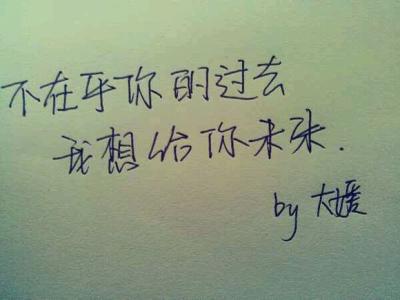 不在乎你的过去
我想给你未来.
by 大媛